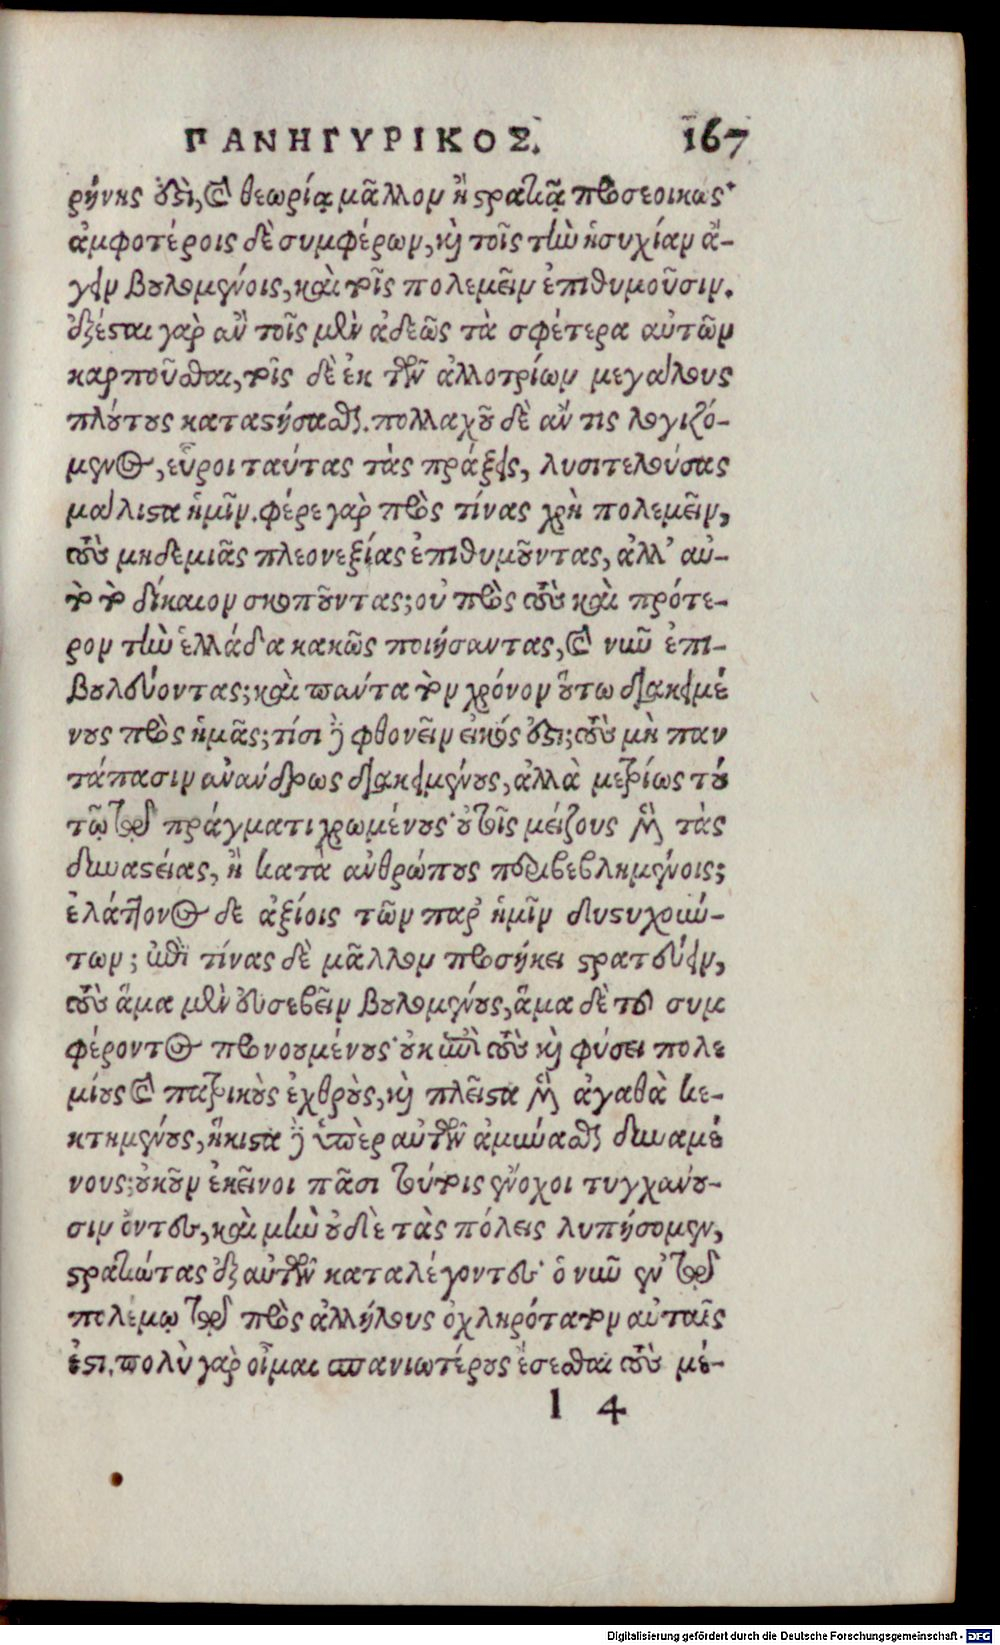 ΠΑΝΗΓΥΡΙΚΟΣ. 167
ρήνης ὅϛι, καὶ θεωρίᾳ μᾶλλον ἢ ϛρατιᾷ προσεοικώς·
ἀμφοτέροις δὲ συμφέρων, καὶ τοῖς τὴν ἡσυχίαν ἄ-
γειν βουλομένοις, καὶ τοῖς πολεμεῖν ἐπιθυμοῦσιν.
ἐξέϛαι γὰρ ἂν τοῖς μὲν ἀδεῶς τὰ σφέτερα αὐτῶν
καρποῦσθαι, τοῖς δὲ ἐκ τῶν ἀλλοτρίων μεγάλους
πλούτους καταϛήσασθαι. πολλαχοῦ δὲ ἄν τις λογιζό-
μενος, εὕροι ταύτας τὰς πράξεις, λυσιτελούσας
μάλιϛα ἡμῖν. φέρε γὰρ πρὸς τίνας χρὴ πολεμεῖν,
τοὺς μηδεμιᾶς πλεονεξίας ἐπιθυμοῦντας, ἀλλ' αὐ-
τὸ τὸ δίκαιον σκοποῦντας; οὐ πρὸς τοὺς καὶ πρότε-
ρον τὴν ἑλλάδα κακῶς ποιήσαντας, καὶ νῦν ἐπι-
βουλεύοντας; καὶ πάντα τὸν χρόνον οὕτω διακειμέ
νους πρὸς ἡμᾶς; τίσι δὲ φθονεῖν εἰκός ὅϛι; τοὺς μὴ παν
τάπασιν ἀνάνδρως διακειμένους, ἀλλὰ μετρίως τού
τῳ τῷ πράγματι χρωμένους· οὐ τοῖς μείζους μὲν τὰς
δυναϛείας, ἢ κατὰ ἀνθρώπους περιβεβλημένοις;
ἐλάττονος δὲ ἀξίοις τῶν παρ' ἡμῖν δυϛυχούν-
των; ἐπὶ τίνας δὲ μᾶλλον προσήκει ϛρατεύειν,
τοὺς ἅμα μὲν εὐσεβεῖν βουλομένους, ἅμα δὲ τοῦ συμ
φέροντος προνουμένους· οὐκ ἐπὶ τοὺς καὶ φύσει πολε
μίους καὶ πατρικοὺς ἐχθροὺς, καὶ πλεῖϛα μὲν ἀγαθὰ κε-
κτημένους, ἥκιϛα δὲ ὑπὲρ αὐτῶν ἀμύνασθαι δυναμέ
νους; οὐκοῦν ἐκεῖνοι πᾶσι τούτοις ἔνοχοι τυγχάνου-
σιν ὄντες, καὶ μὴν οὐδὲ τὰς πόλεις λυπήσομεν,
ϛρατιώτας ἐξ αὐτῶν καταλέγοντες· ὃ νῦν ἐν τῷ
πολέμῳ τῷ πρὸς ἀλλήλους ὀχληρότατον αὐταῖς
ἐϛι. πολὺ γὰρ οἶμαι σπανιωτέρους ἔσεσθαι τοὺς μέ-
l 4
Digitalisierung gefördert durch die Deutsche Forschungsgemeinschaft - DFG